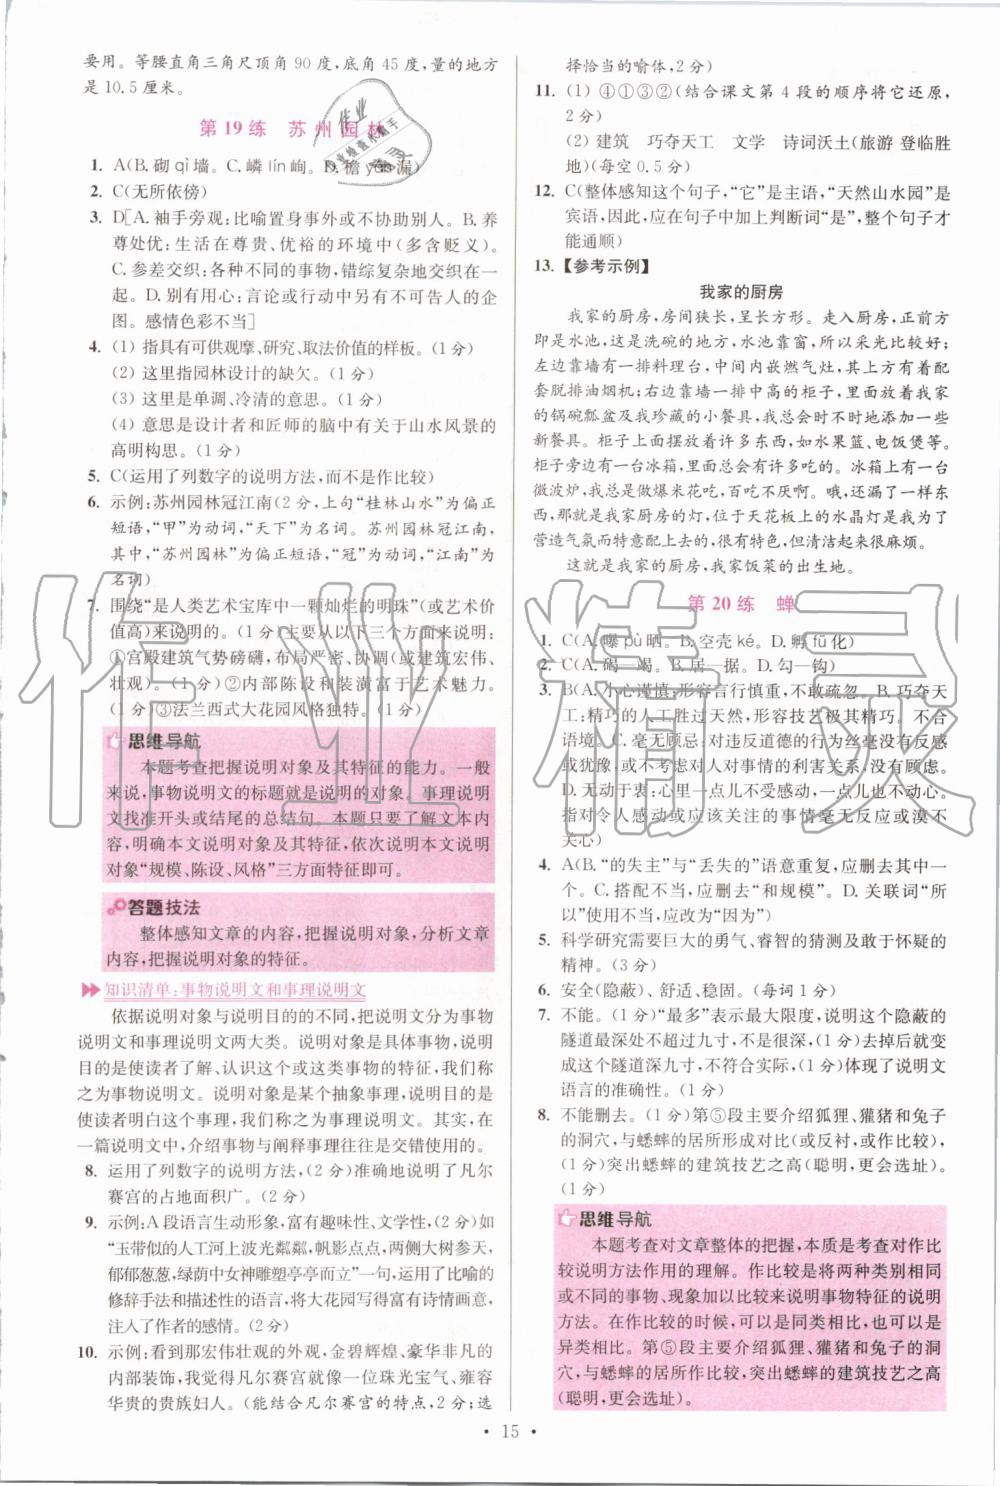 要用。等腰直角三角尺顶角 90 度,底角 45 度,量的地方
是 10.5 厘米。
第 19 练 苏州园林
1. A(B. 砌 qì 墙。C. 嶙 lín 峋。D. 檐 漏)
2. C(无所依傍)
3. D[A. 袖手旁观:比喻置身事外或不协助别人。B. 养
尊处优:生活在尊贵、优裕的环境中(多含贬义)。
C. 参差交织:各种不同的事物,错综复杂地交织在一
起。D. 别有用心:言论或行动中另有不可告人的企
图。感情色彩不当]
4. (1) 指具有可供观摩、研究、取法价值的样板。(1 分)
(2) 这里指园林设计的缺欠。(1 分)
(3) 这里是单调、冷清的意思。(1 分)
(4) 意思是设计者和匠师的脑中有关于山水风景的
高明构思。(1 分)
5. C(运用了列数字的说明方法,而不是作比较)
6. 示例:苏州园林冠江南(2 分,上句“桂林山水”为偏正
短语,“甲”为动词,“天下”为名词。苏州园林冠江南,
其中,“苏州园林”为偏正短语,“冠”为动词,“江南”为
名词)
7. 围绕“是人类艺术宝库中一颗灿烂的明珠”(或艺术价
值高)来说明的。(1 分)主要从以下三个方面说明:
①宫殿建筑气势磅礴,布局严密、协调(或建筑宏伟、
壮观)。(1 分)②内部陈设和装潢富于艺术魅力。
(1 分)③法兰西式大花园风格独特。(1 分)
思维导航
本题考查把握说明对象及其特征的能力。一般
来说,事物说明文的标题就是说明的对象、事理说明
文找准开头或结尾的总结句。本题只要了解文本内
容,明确本文说明对象及其特征,依次说明本文说明
对象“规模、陈设、风格”三方面特征即可。
答题技法
整体感知文章的内容,把握说明对象,分析文章
内容,把握说明对象的特征。
知识清单:事物说明文和事理说明文
依据说明对象与说明目的的不同,把说明文分为事物
说明文和事理说明文两大类。说明对象是具体事物,说明
目的是使读者了解、认识这个或这类事物的特征,我们称
之为事物说明文。说明对象是某个抽象事理,说明目的是
使读者明白这个事理,我们称之为事理说明文。其实,在
一篇说明文中,介绍事物与阐释事理往往是交错使用的。
8. 运用了列数字的说明方法,(2 分)准确地说明了凡尔
赛宫的占地面积广。(2 分)
9. 示例:A 段语言生动形象,富有趣味性、文学性,(2 分)如
“玉带似的人工河上波光粼粼,帆影点点,两侧大树参天,
郁郁葱葱,绿荫中女神雕塑亭亭而立”一句,运用了比喻的
修辞手法和描述性的语言,将大花园写得富有诗情画意,
注入了作者的感情。(2 分)
10. 示例:看到那宏伟壮观的外观,金碧辉煌、豪华非凡的
内部装饰,我觉得凡尔赛宫就像一位珠光宝气、雍容
华贵的贵族妇人。(能结合凡尔赛宫的特点,2 分;选
择恰当的喻体,2 分)
11. (1) ④①③②(结合课文第 4 段的顺序将它还原,
2 分)
(2) 建筑 巧夺天工 文学 诗词沃土(旅游 登临胜
地)(每空 0.5 分)
12. C(整体感知这个句子,“它”是主语,“天然山水园”是
宾语,因此,应在句子中加上判断词“是”,整个句子才
能通顺)
13. 【参考示例】
我家的厨房
我家的厨房,房间狭长,呈长方形。走入厨房,正前方
即是水池,这是洗碗的地方,水池靠窗,所以采光比较好;
左边靠墙有一排料理台,中间内嵌燃气灶,其上方有着配
套脱排油烟机;右边靠墙一排中高的柜子,里面放着我家
的锅碗瓢盆及我珍藏的小餐具,我总会时不时地添加一些
新餐具。柜子上面摆放着许多东西,如水果篮、电饭煲等。
柜子旁边有一台冰箱,冰箱上有我家的零食,还有一台
微波炉,我总是做爆米花吃,百吃不厌啊。哦,还漏了一样东
西,那就是我家厨房的灯,位于天花板上的水晶灯是我为了
营造气氛而特意配上去的,很漂亮,但清理起来很麻烦。
这就是我家的厨房,我家饭菜的出生地。
第 20 练 蝉
1. C(A. 曝 pù 晒。B. 空壳 ké。D. 孵 fū 化)
2. C(A. 碣—竭。B. 居—据。D. 勾—钩)
3. B(A. 小心谨慎:形容言行慎重,不敢疏忽。B. 巧夺天
工:精巧的人工胜过天然,形容技艺极其精巧。不合
语境。C. 毫无顾忌:对违反道德的行为丝毫没有反感
或犹豫,或不考虑对人或对事情的利害关系,没有顾虑。
D. 无动于衷:心里一点儿不受感动,一点儿也不动心。
指对令人感动或应该关注的事情毫无反应或漠不
关心)
4. A(B. “的失主”与“丢失的”语意重复,应删去“丢失
的”。C. 搭配不当,应删去“和规模”。D. 关联词“所
以”使用不当,应改为“因为”)
5. 科学研究需要巨大的勇气、睿智的猜测及敢于怀疑的
精神。(3 分)
6. 安全(隐蔽)、舒适、稳固。(每词 1 分)
7. 不能。(1 分)“最多”表示最大限度,说明这个隐蔽的
隧道最深不超过九寸,不是很深,(1 分)去掉后就变成
这个隧道深九寸,不符合实际,(1 分)体现了说明文
语言的准确性。(1 分)
8. 不能删去。(1 分)第⑤段主要介绍狐狸、獾猪和兔子
的洞穴,与蟋蟀的居所形成对比(或反衬,或作比较),
(1 分)突出蟋蟀的建筑技艺之高(聪明,更会选址)。
(1 分)
思维导航
本题考查对文章整体的把握,本质是考查对作比
较说明方法作用的理解。作比较是将两种类别相同
或不同的事物、现象加以比较来说明事物特征的说明
方法。在作比较的时候,可以是同类相比,也可以是
异类相比。第⑤段主要介绍狐狸、獾猪和兔子的洞
穴,与蟋蟀的居所作比较,突出蟋蟀的建筑技艺之高
(聪明,更会选址)。
• 15 •
作业精灵